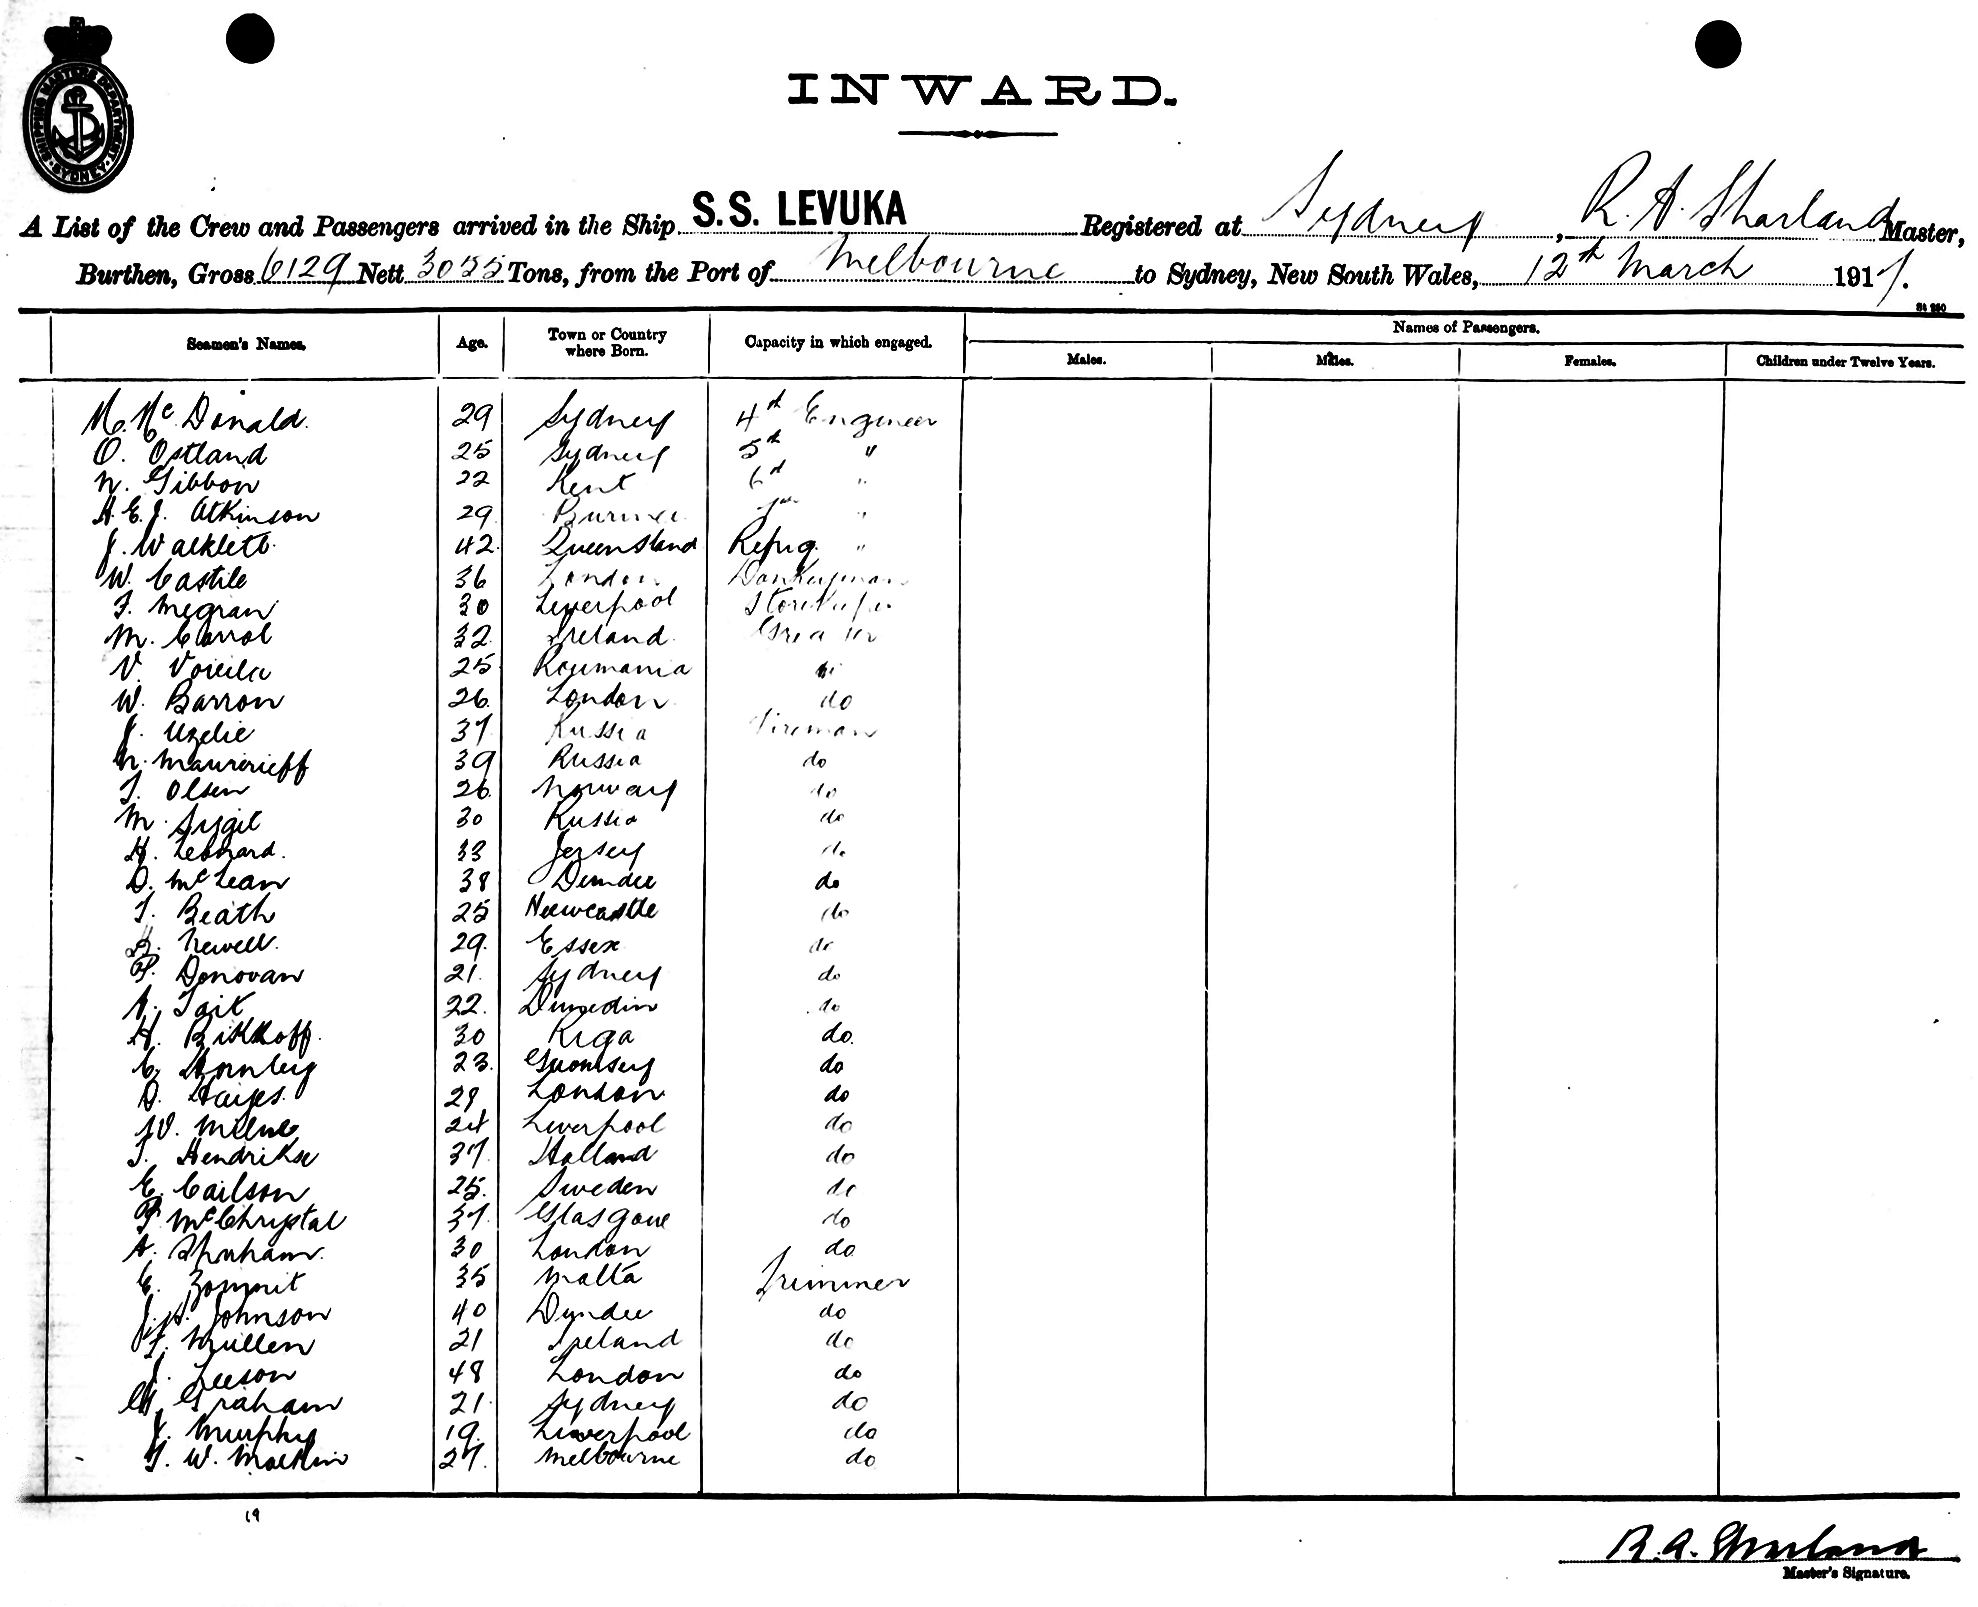 SHIPPING MASTERS DEPARTMENT
SYDNEY
INWARD.
A List of the Crew and Passengers arrived in the Ship S.S. LEVUKA Registered at Sydney, R. A. Sharland Master,
Burthen, Gross 6129 Nett 3055 Tons, from the Port of Melbourne to Sydney, New South Wales, 12th March 1917.
Seamen's Names. Age. Town or Country where Born. Capacity in which engaged. Names of Passengers.
Males. Males. Females. Children under Twelve Years.
M. McDonald. 29 Sydney 4th Engineer
O. Ostland 25 Sydney 5th "
N. Gibbon 22 Kent 6th "
A. E. J. Atkinson 29 "
J. Walklett 42 Queensland Refrig. "
W. Castile 36 London Donkeyman
T. Megran 30 Liverpool Storekeeper
M. Carrol 32 Ireland Greaser
V. 25 Roumania
W. Barron 26 London do
J. Uzelie 37 Russia Fireman
N. 39 Russia do
T. Olsen 26 Norway do
M. 30 Russia do
H. Leonard. 33 Jersey do
D. McLean 38 Dundee do
T. Beath 25 Newcastle do
Newell. 29 Essex do
P. Donovan 21 Sydney do
A. Tait 22 Dunedin do
H. Bikkoff 30 Riga do
C. Hornby 23 do
D. Hayes. 29 London do
W. Milne 24 Liverpool do
T. Hendrikse 37 Holland do
E. Carlson 25 Sweden do
P. McChrystal 37 Glasgow do
A. Abraham 30 London do
C. Zommit 35 Malta Trimmer
J. A. Johnson 40 Dundee do
F. Mullen 21 Ireland do
J. Leeson 48 London do
Graham 21 Sydney do
J. Murphy 19 Liverpool do
T. W. 27 Melbourne do
19
R. A. Sharland
Master's Signature.